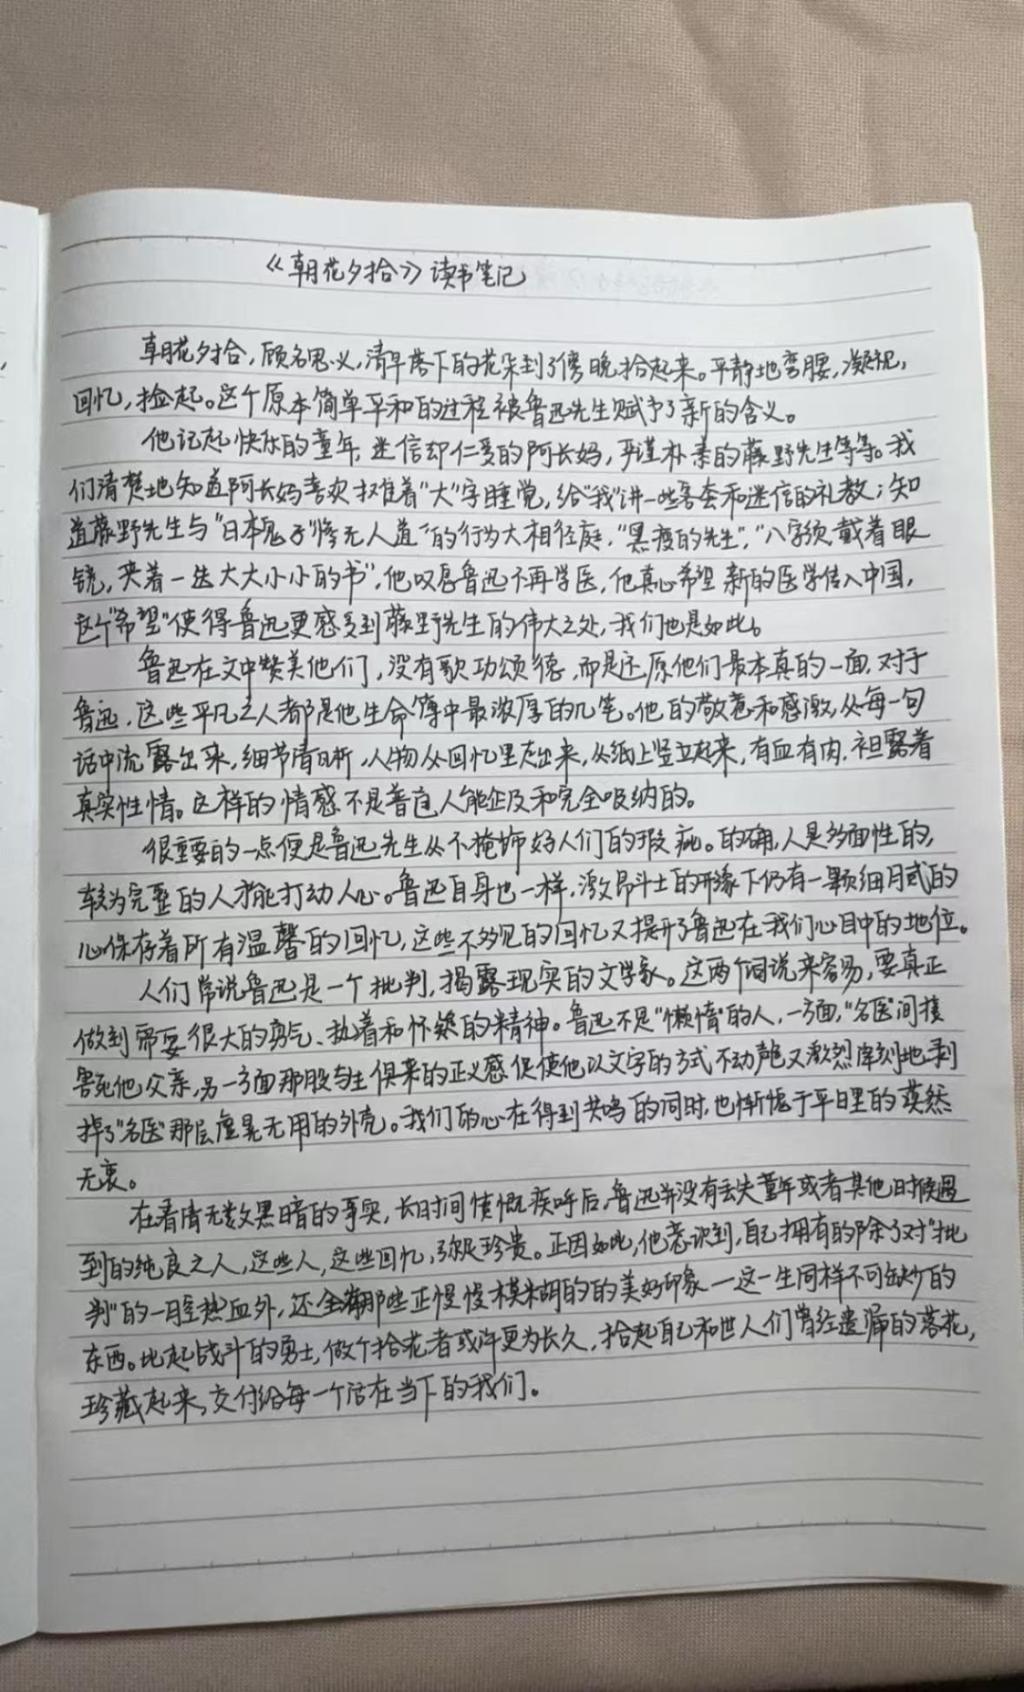 《朝花夕拾》读书笔记
朝花夕拾,顾名思义,清早落下的花朵到了傍晚拾起来。平静地弯腰,凝视,
回忆,捡起。这个原本简单平和的过程被鲁迅先生赋予了新的含义。
他记起快乐的童年,迷信却仁爱的阿长妈,严谨朴素的藤野先生等等。我
们清楚地知道阿长妈喜欢摆着"大"字睡觉,给"我"讲一些客套和迷信的礼教;知
道藤野先生与"日本鬼子惨无人道"的行为大相径庭,"黑瘦的先生","八字须,戴着眼
镜,夹着一迭大大小小的书",他叹息鲁迅不再学医,他真心希望新的医学传入中国,
这个"希望"使得鲁迅更感受到藤野先生的伟大之处,我们也是如此。
鲁迅在文中赞美他们,没有歌功颂德,而是还原他们最本真的一面,对于
鲁迅,这些平凡之人都是他生命簿中最浓厚的几笔。他的敬意和感激,从每一句
话中流露出来,细节清晰,人物从回忆里走出来,从纸上竖立起来,有血有肉,袒露着
真实性情。这样的情感不是普通人能企及和完全吸纳的。
很重要的一点便是鲁迅先生从不掩饰好人们的瑕疵。的确,人是多面性的,
较为完整的人才能打动人心。鲁迅自身也一样,激昂斗士的形象下仍有一颗细腻的
心保存着所有温馨的回忆,这些不多见的回忆又提升了鲁迅在我们心目中的地位。
人们常说鲁迅是一个批判,揭露现实的文学家。这两个词说来容易,要真正
做到需要很大的勇气、执着和怀疑的精神。鲁迅不是"懒惰"的人,一方面,"名医"间接
害死他父亲,另一方面那股与生俱来的正义感促使他以文字的方式不动声色又激烈深刻地剥
掉了"名医"那层虚晃无用的外壳。我们的心在得到共鸣的同时,也惭愧于平日里的漠然
无衷。
在看清无数黑暗的事实,长时间愤慨疾呼后,鲁迅并没有丢失童年或者其他时候遇
到的纯良之人,这些人,这些回忆,弥足珍贵。正因如此,他意识到,自己拥有的除了对"批
判"的一腔热血外,还全部那些正慢慢模糊的的美好印象—这一生同样不可缺少的
东西。比起战斗的勇士,做个拾花者或许更为长久,拾起自己和世人们曾经遗漏的落花,
珍藏起来,交付给每一个活在当下的我们。